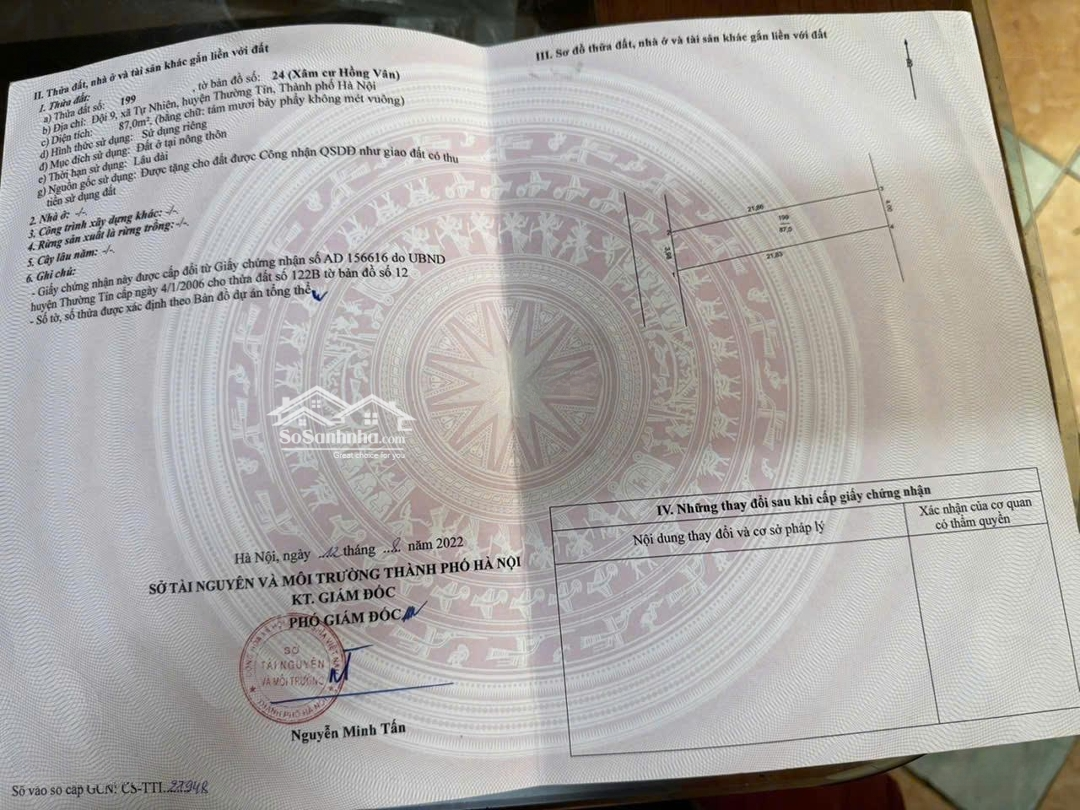 II. Thửa đất, nhà ở và tài sản khác gắn liền với đất
1. Thửa đất:
a) Thửa đất số: 199 , tờ bản đồ số: 24 (Xâm cư Hồng Vân)
b) Địa chỉ: Đội 9, xã Tự Nhiên, huyện Thường Tín, Thành phố Hà Nội
c) Diện tích: 87,0m², (bằng chữ: tám mươi bảy phẩy không mét vuông)
d) Hình thức sử dụng: Sử dụng riêng
đ) Mục đích sử dụng: Đất ở tại nông thôn
e) Thời hạn sử dụng: Lâu dài
g) Nguồn gốc sử dụng: Được tặng cho đất được Công nhận QSDĐ như giao đất có thu
tiền sử dụng đất
2. Nhà ở: -/-
3. Công trình xây dựng khác: -/-
4. Rừng sản xuất là rừng trồng: -/-
5. Cây lâu năm: -/-
6. Ghi chú:
- Giấy chứng nhận này được cấp đổi từ Giấy chứng nhận số AD 156616 do UBND
huyện Thường Tín cấp ngày 4/1/2006 cho thửa đất số 122B tờ bản đồ số 12
- Số tờ, số thửa được xác định theo Bản đồ dự án tổng thể
SoSanhnha.com
Great choice for you
Hà Nội, ngày 12 tháng 8 năm 2022
SỞ TÀI NGUYÊN VÀ MÔI TRƯỜNG THÀNH PHỐ HÀ NỘI
KT. GIÁM ĐỐC
PHÓ GIÁM ĐỐC
SỞ
TÀI NGUYÊN
VÀ MÔI TRƯỜNG
THÀNH PHỐ HÀ NỘI
Nguyễn Minh Tấn
Số vào sổ cấp GCN: CS-TTI
III. Sơ đồ thửa đất, nhà ở và tài sản khác gắn liền với đất
B
21,86
3
2
199
87,0
4,00
3,98
4
21,83
1
IV. Những thay đổi sau khi cấp giấy chứng nhận
Nội dung thay đổi và cơ sở pháp lý
Xác nhận của cơ quan
có thẩm quyền